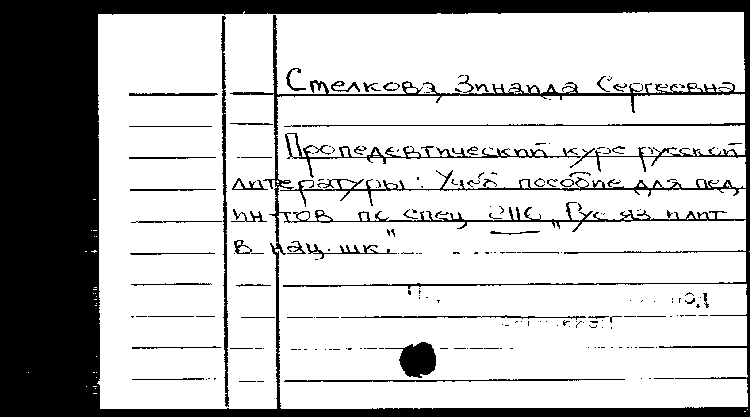 Стелкова, Зинаида Сергеевна
Пропедевтический курс русской
литературы: Учеб. пособие для пед.
ин-тов по спец. 2116 „Рус. яз. и лит.
в нац. шк."